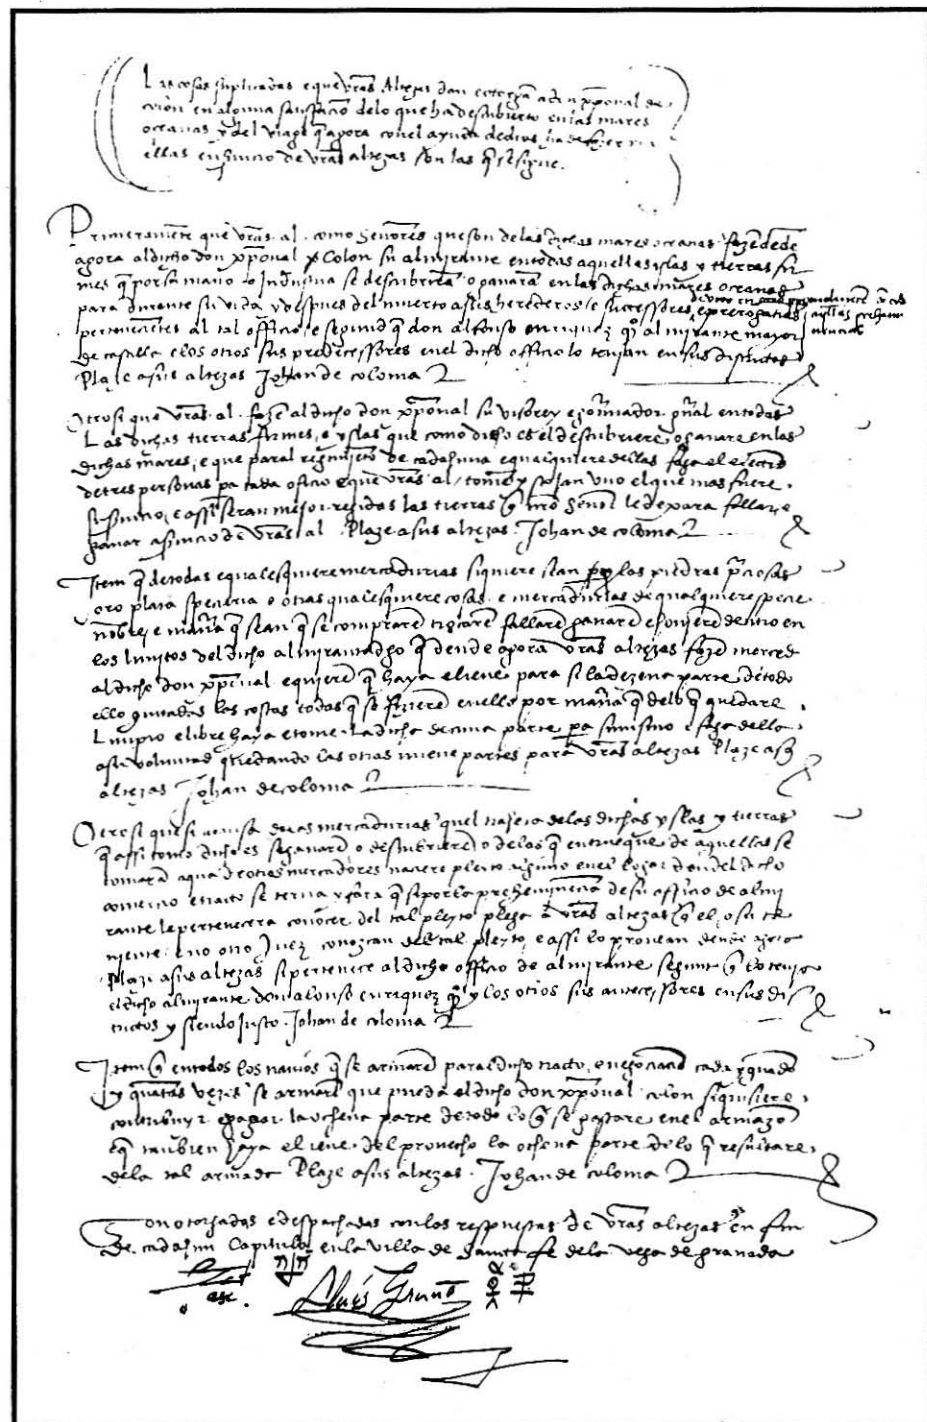 Las cosas suplicadas e que vras Altezas dan e otorgan a don xpoual de
colon en alguna satisfacion delo que ha descubierto en las mares
oceanas y del viage q agora con el ayuda de dios ha de fazer por
ellas en seruicio de vras altezas son las q se siguen.
Primeramente que vras al. como Senores que son delas dichas mares oceanas fazen dende
agora al dicho don xpoual Colon su almirante en todas aquellas islas y tierras fir
mes q por su mano o Industria se descubriran o ganaran en las dichas mares oceanas
para durante su vida y despues del muerto a sus herederos e successores
de vno en perpetualmente con todas aquellas preheminencias e prerogatiuas
pertenecientes al tal officio e segund que don alfonso enrriquez almirante mayor
de castilla e los otros sus predecessores en el dicho officio lo tenian en sus districtos
Plaze a sus altezas Johan de coloma
Otrosi que vras. al. fazen al dicho don xpoual su visorey e gouernador gnal en todas
Las dichas tierras firmes, e yslas que como dicho es el descubriere o ganare en las
dichas mares, e que paral regimiento de cada huna e qualquiere dellas faga el eleccion
de tres personas pa cada oficio e que vras al. tomen y scojan vno el que mas fuere
su seruicio, e assi seran mejor regidas las tierras q nro Senor le dexara fallar e
ganar a seruicio de vras al. Plaze a sus altezas. Johan de coloma
Item q de todas e qualesquiere mercadurias siquiere sean perlas piedras preciosas
oro plata speciería e otras qualesquiere cosas e mercadurias de qualquiere specie
nombre e manera q sean q se compraren trocaren fallaren ganaren e houieren dentro en
los limites del dicho almirantadgo q dende agora vras altezas fazen merced
al dicho don xpoual e quieren q haya e lieue para si la dezena parte de todo
ello quitadas las costas todas q se fizieren en ello por manera q delo q quedare
Limpio e libre haya e tome la dicha decima parte pa si mismo e faga dello
a su voluntad quedando las otras nueue partes para vras altezas Plaze a sus
altezas Johan de coloma
Otrosi que si a causa delas mercadurias quel traiera delas dichas yslas y tierras
q assi como dicho es se ganaren o descubrieren o delas q en trueque de aquellas se
tomaran aqua de otros mercadores naciere pleyto alguno en el logar don del dicho
comercio e tracto se terna y fara q si por la preheminencia de su officio de almi
rante le pertenecera conocer del tal pleyto plega a vras altezas q el o su te
niente e no otro Juez conozcan del tal pleyto, e assi lo prouean dende agora
Plaze a sus altezas si pertenece al dicho officio de almirante segunt q lo tenia
el dicho almirante don alonso enrriquez y los otros sus antecessores en sus dis
trictos y siendo justo. Johan de coloma
Item q en todos los nauios q se armaren para el dicho tracto, e negociacion cada y quando
y quantas vezes se armaren que pueda el dicho don xpoual colon si quisiere
contribuyr e pagar la ochena parte de todo lo q se gastare en el armazon
e q tambien haya e lieue del prouecho la ochena parte delo q resultare
dela tal armada Plaze a sus altezas. Johan de coloma
Son otorgadas e despachadas con las respuestas de vras altezas en fin
de cada hun Capitulo en la villa de Santa fe dela vega de granada